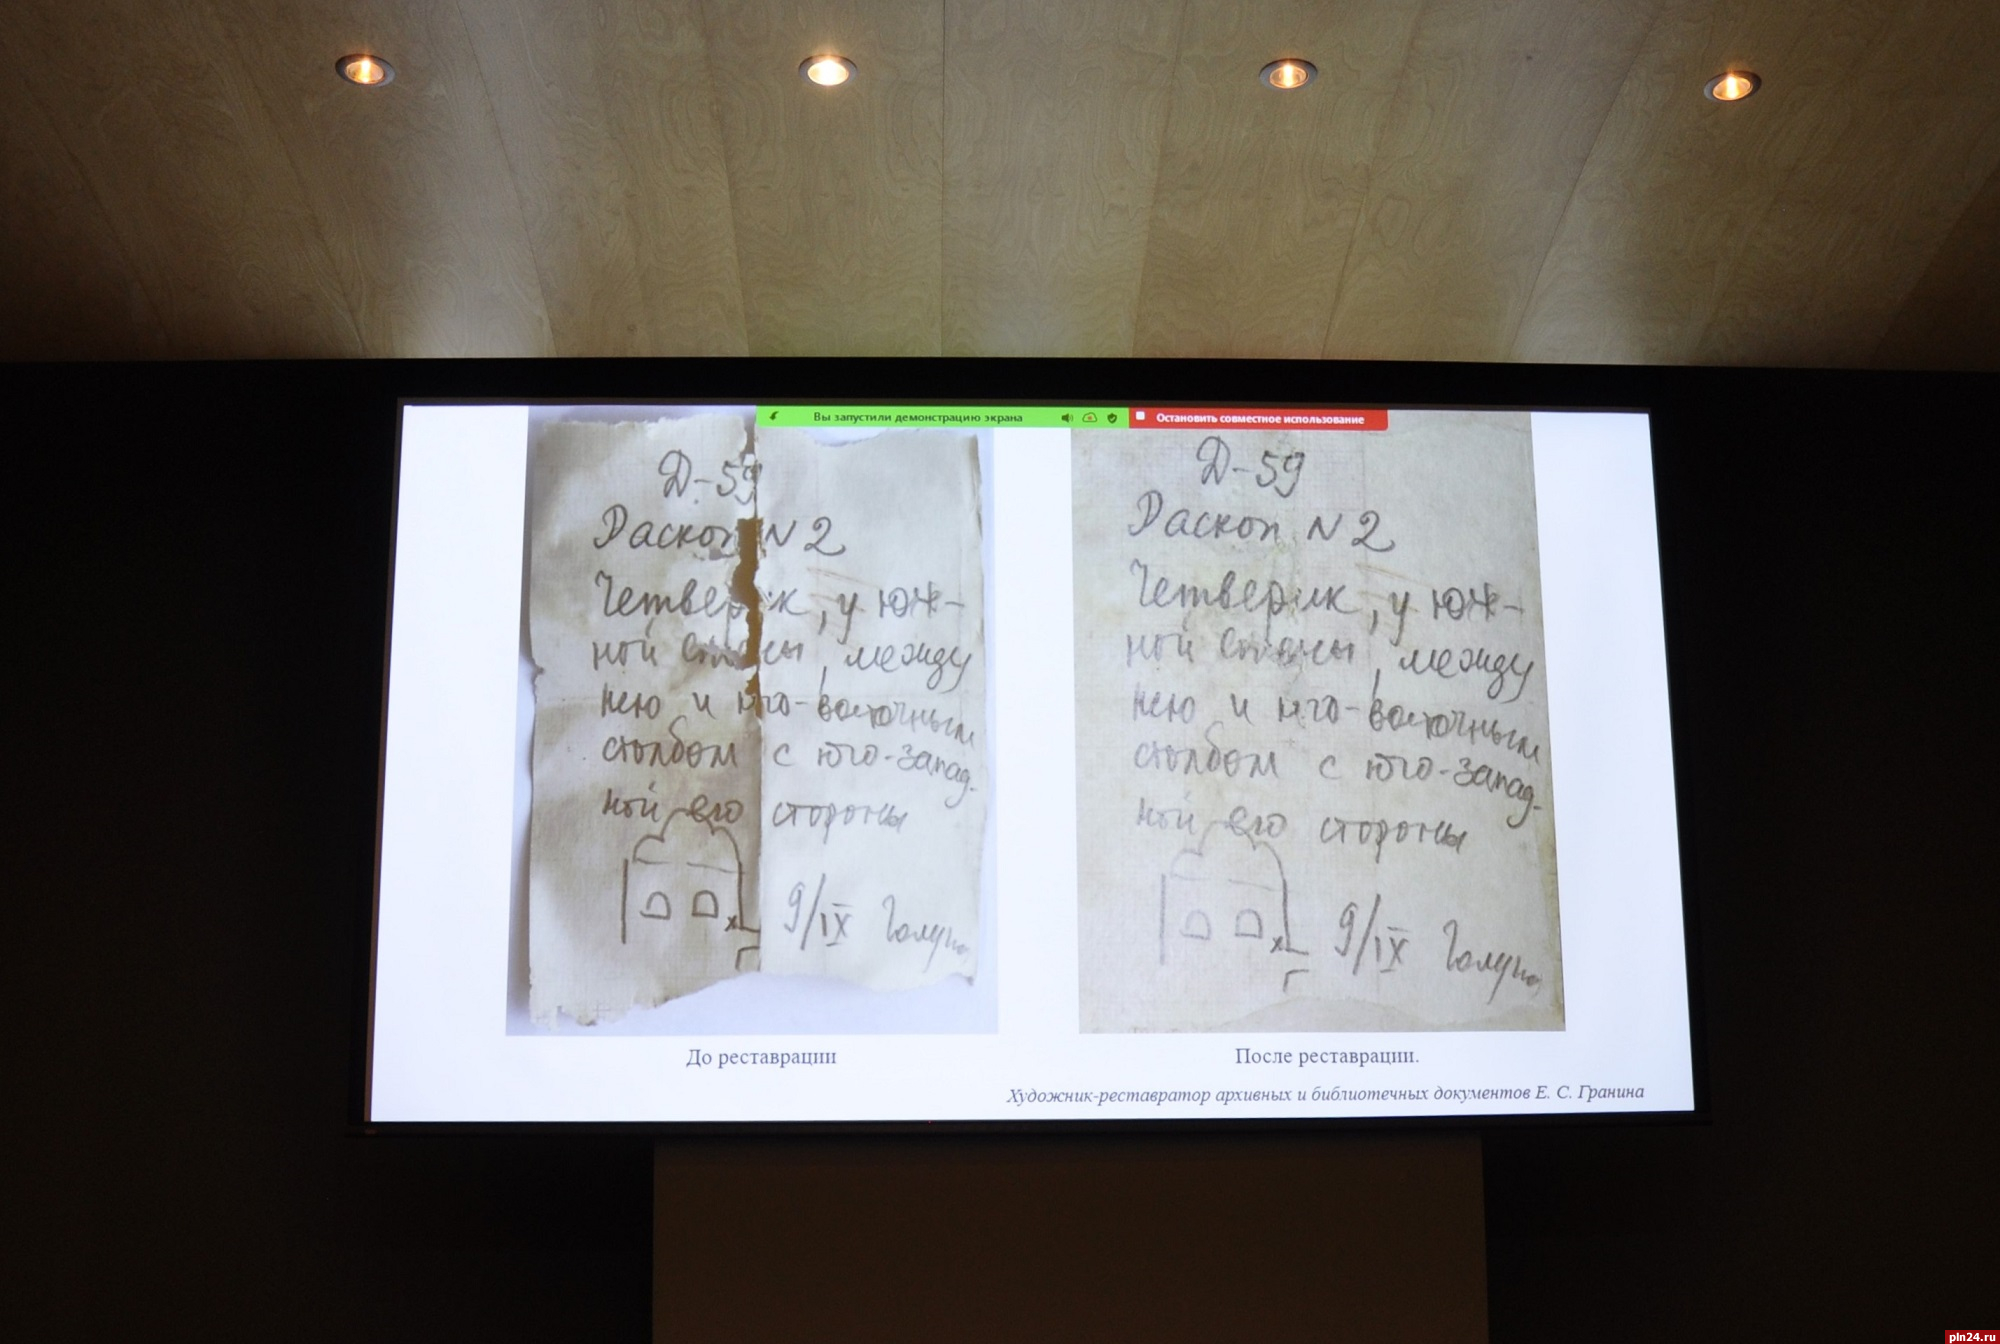 Вы запустили демонстрацию экрана
Остановить совместное использование
Д-59
Раскоп N 2
Четверик, у юж-
ной стены, между
нею и юго-восточным
столбом с юго-запад-
ной его стороны
9/IX
До реставрации
Д-59
Раскоп N 2
Четверик, у юж-
ной стены, между
нею и юго-восточным
столбом с юго-запад-
ной его стороны
9/IX
После реставрации.
Художник-реставратор архивных и библиотечных документов Е. С. Гранина
pln24.ru